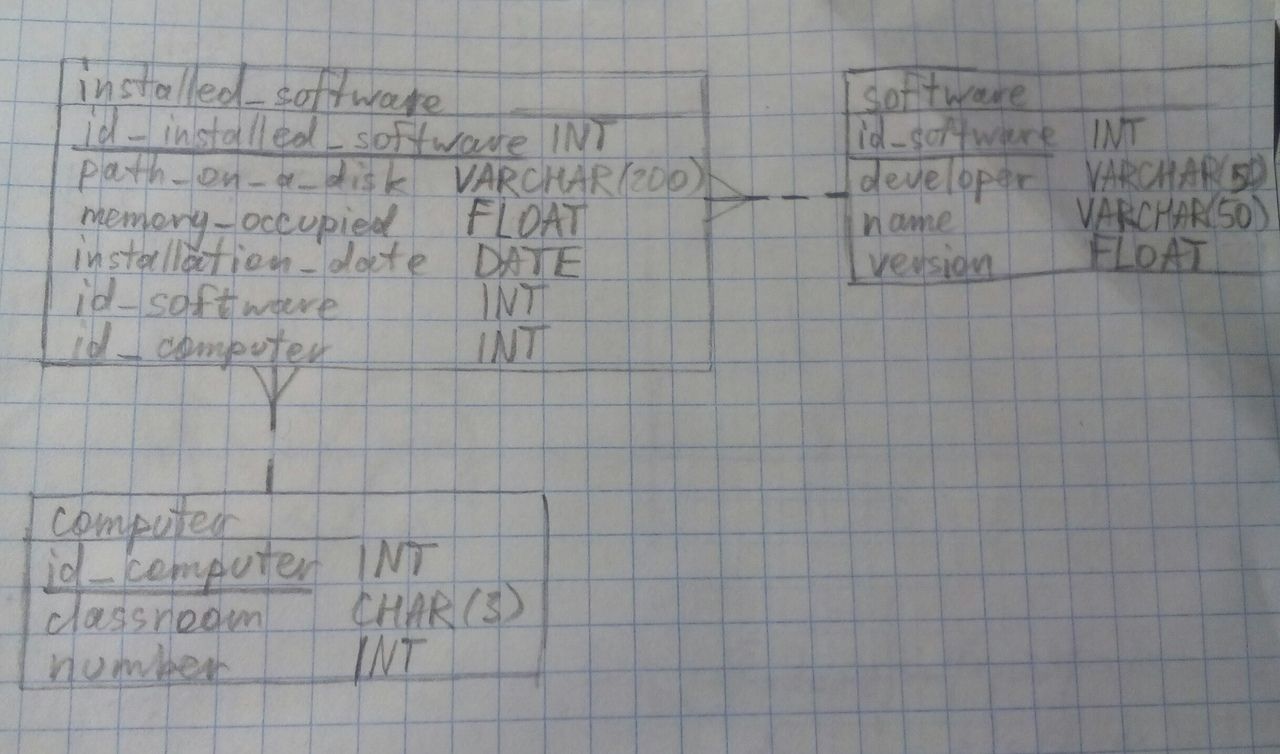 installed_software
id_installed_software INT
path_on_a_disk VARCHAR(200)
memory_occupied FLOAT
installation_date DATE
id_software INT
id_computer INT
software
id_software INT
developer VARCHAR(50)
name VARCHAR(50)
version FLOAT
computer
id_computer INT
classroom CHAR(3)
number INT